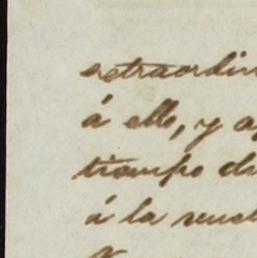 extraordin
á ello, y a
tiempo d
á la